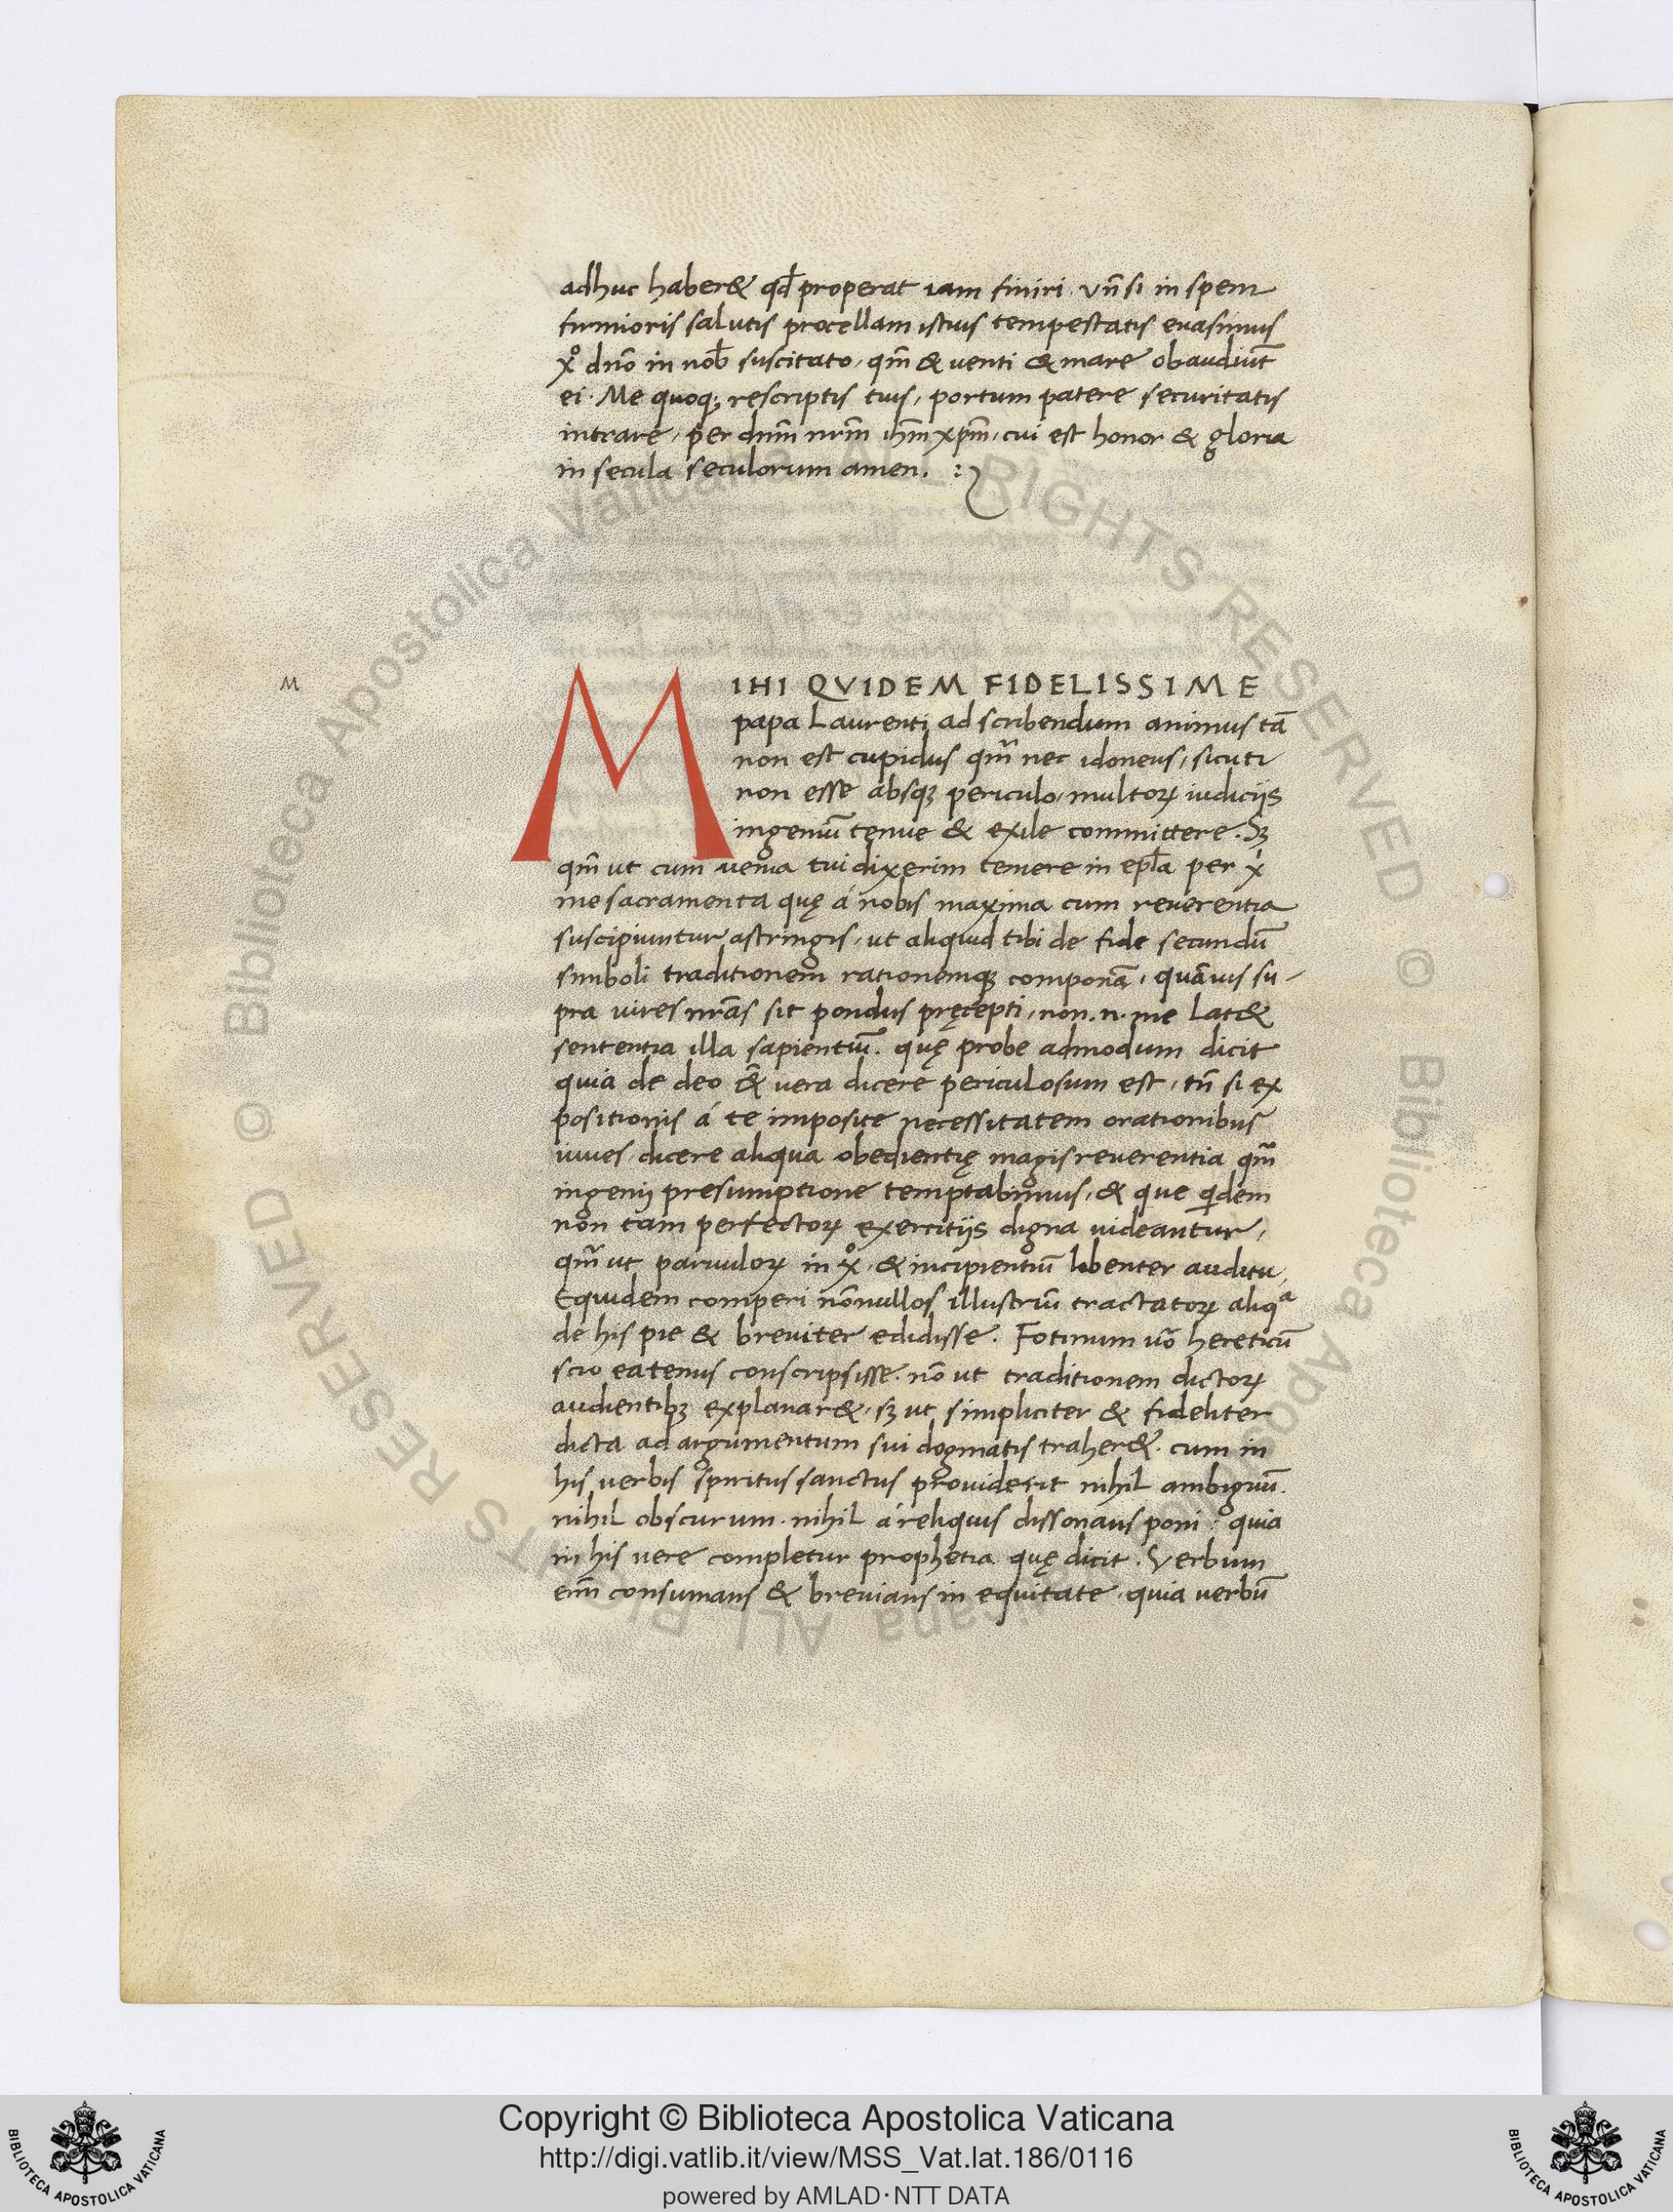 adhuc haber& qđ properat iam finiri. vn̄ si in spem
firmioris salutis procellam istius tempestatis euasimus
xº dnō in nob̄ suscitato, qm̄ & venti & mare obaudiūt
ei. Me quoq; rescriptis tuis, portum patere securitatis
intrare, per dnm̄ nrm̄ ihm̄ xpm̄, cui est honor & gloria
in secula seculorum amen. :
M
MIHI QVIDEM FIDELISSIME
papa Laurenti ad scribendum animus tā
non est cupidus qm̄ nec idoneus, sicuti
non esse absqꝫ periculo, multoꝝ iudicijs
ingeniū tenue & exile committere. Sꝫ
qm̄ ut cum uenia tui dixerim temere in epl̄a per x̄
me sacramenta quę á nobis maxima cum reuerentia
suscipiuntur astringis, ut aliquid tibi de fide secundū
simboli traditionem rationemqꝫ componā, quāuis su-
pra uires nrās sit pondus pręcepti, non .n. me lat&
sententia illa sapientiū. quę probe admodum dicit
quia de deo & vera dicere periculosum est, tn̄ si ex
positionis á te imposite necessitatem orationibus
iuues, dicere aliqua obedientię magis reuerentia qm̄
ingenij presumptione temptabimus, & que qidem
non tam perfectoꝝ exercitijs digna uideantur,
qm̄ ut paruuloꝝ in xº, & incipientiū libenter auditu,
Equidem comperi nōnullos illustriū tractatoꝝ aliqª
de his pie & breuiter edidisse. Fotinum uō hereticū
scio eatenus conscripsisse. nō ut traditionem dictoꝝ
audientibꝫ explanar&, sꝫ ut simpliciter & fideliter
dicta ad argumentum sui dogmatis traher&. cum in
his uerbis spiritus sanctus prouiderit nihil ambiguū.
nihil obscurum. nihil á reliquis dissonans poni: quia
in his uere completur prophetia quę dicit. Verbum
enm̄ consumans & breuians in equitate, quia uerbū
© Biblioteca Apostolica Vaticana ALL RIGHTS RESERVED © Biblioteca Apostolica Vaticana ALL RIGHTS RESERVED
Copyright © Biblioteca Apostolica Vaticana
http://digi.vatlib.it/view/MSS_Vat.lat.186/0116
powered by AMLAD·NTT DATA
BIBLIOTECA APOSTOLICA VATICANA
BIBLIOTECA APOSTOLICA VATICANA